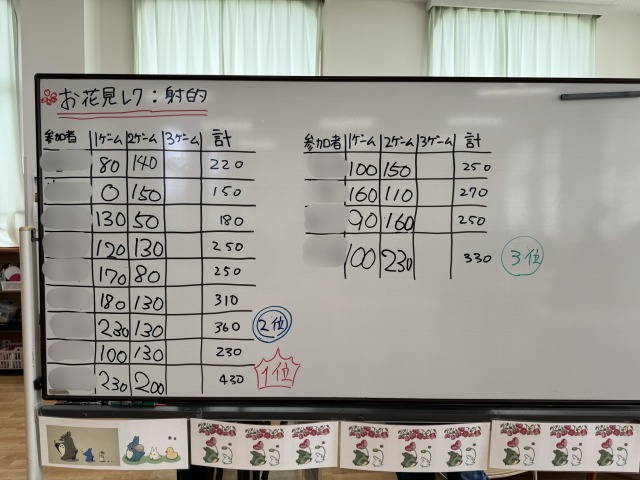 お花見レク：射的
参加者 1ゲーム 2ゲーム 3ゲーム 計
80 140 220
0 150 150
130 50 180
120 130 250
170 80 250
180 130 310
230 130 360 2位
100 130 230
230 200 430 1位
参加者 1ゲーム 2ゲーム 3ゲーム 計
100 150 250
160 110 270
90 160 250
100 230 330 3位